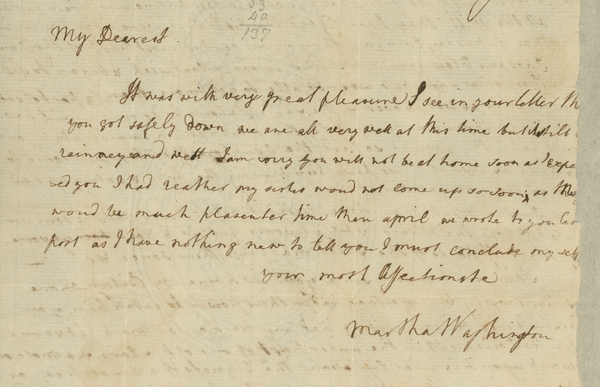 53
40
137
My Dearest
It was with very great pleasure I see in your letter th
you got safely down we are all very well at this time but it still
rainney and wett I am sorry you will not be at home soon as I expe
ed you I had reather my sister woud not come up so soon, as May
woud be much plasenter time than april we wrote to you las
post as I have nothing new to tell you I must conclude my self
your most Affectionate
Martha Washington